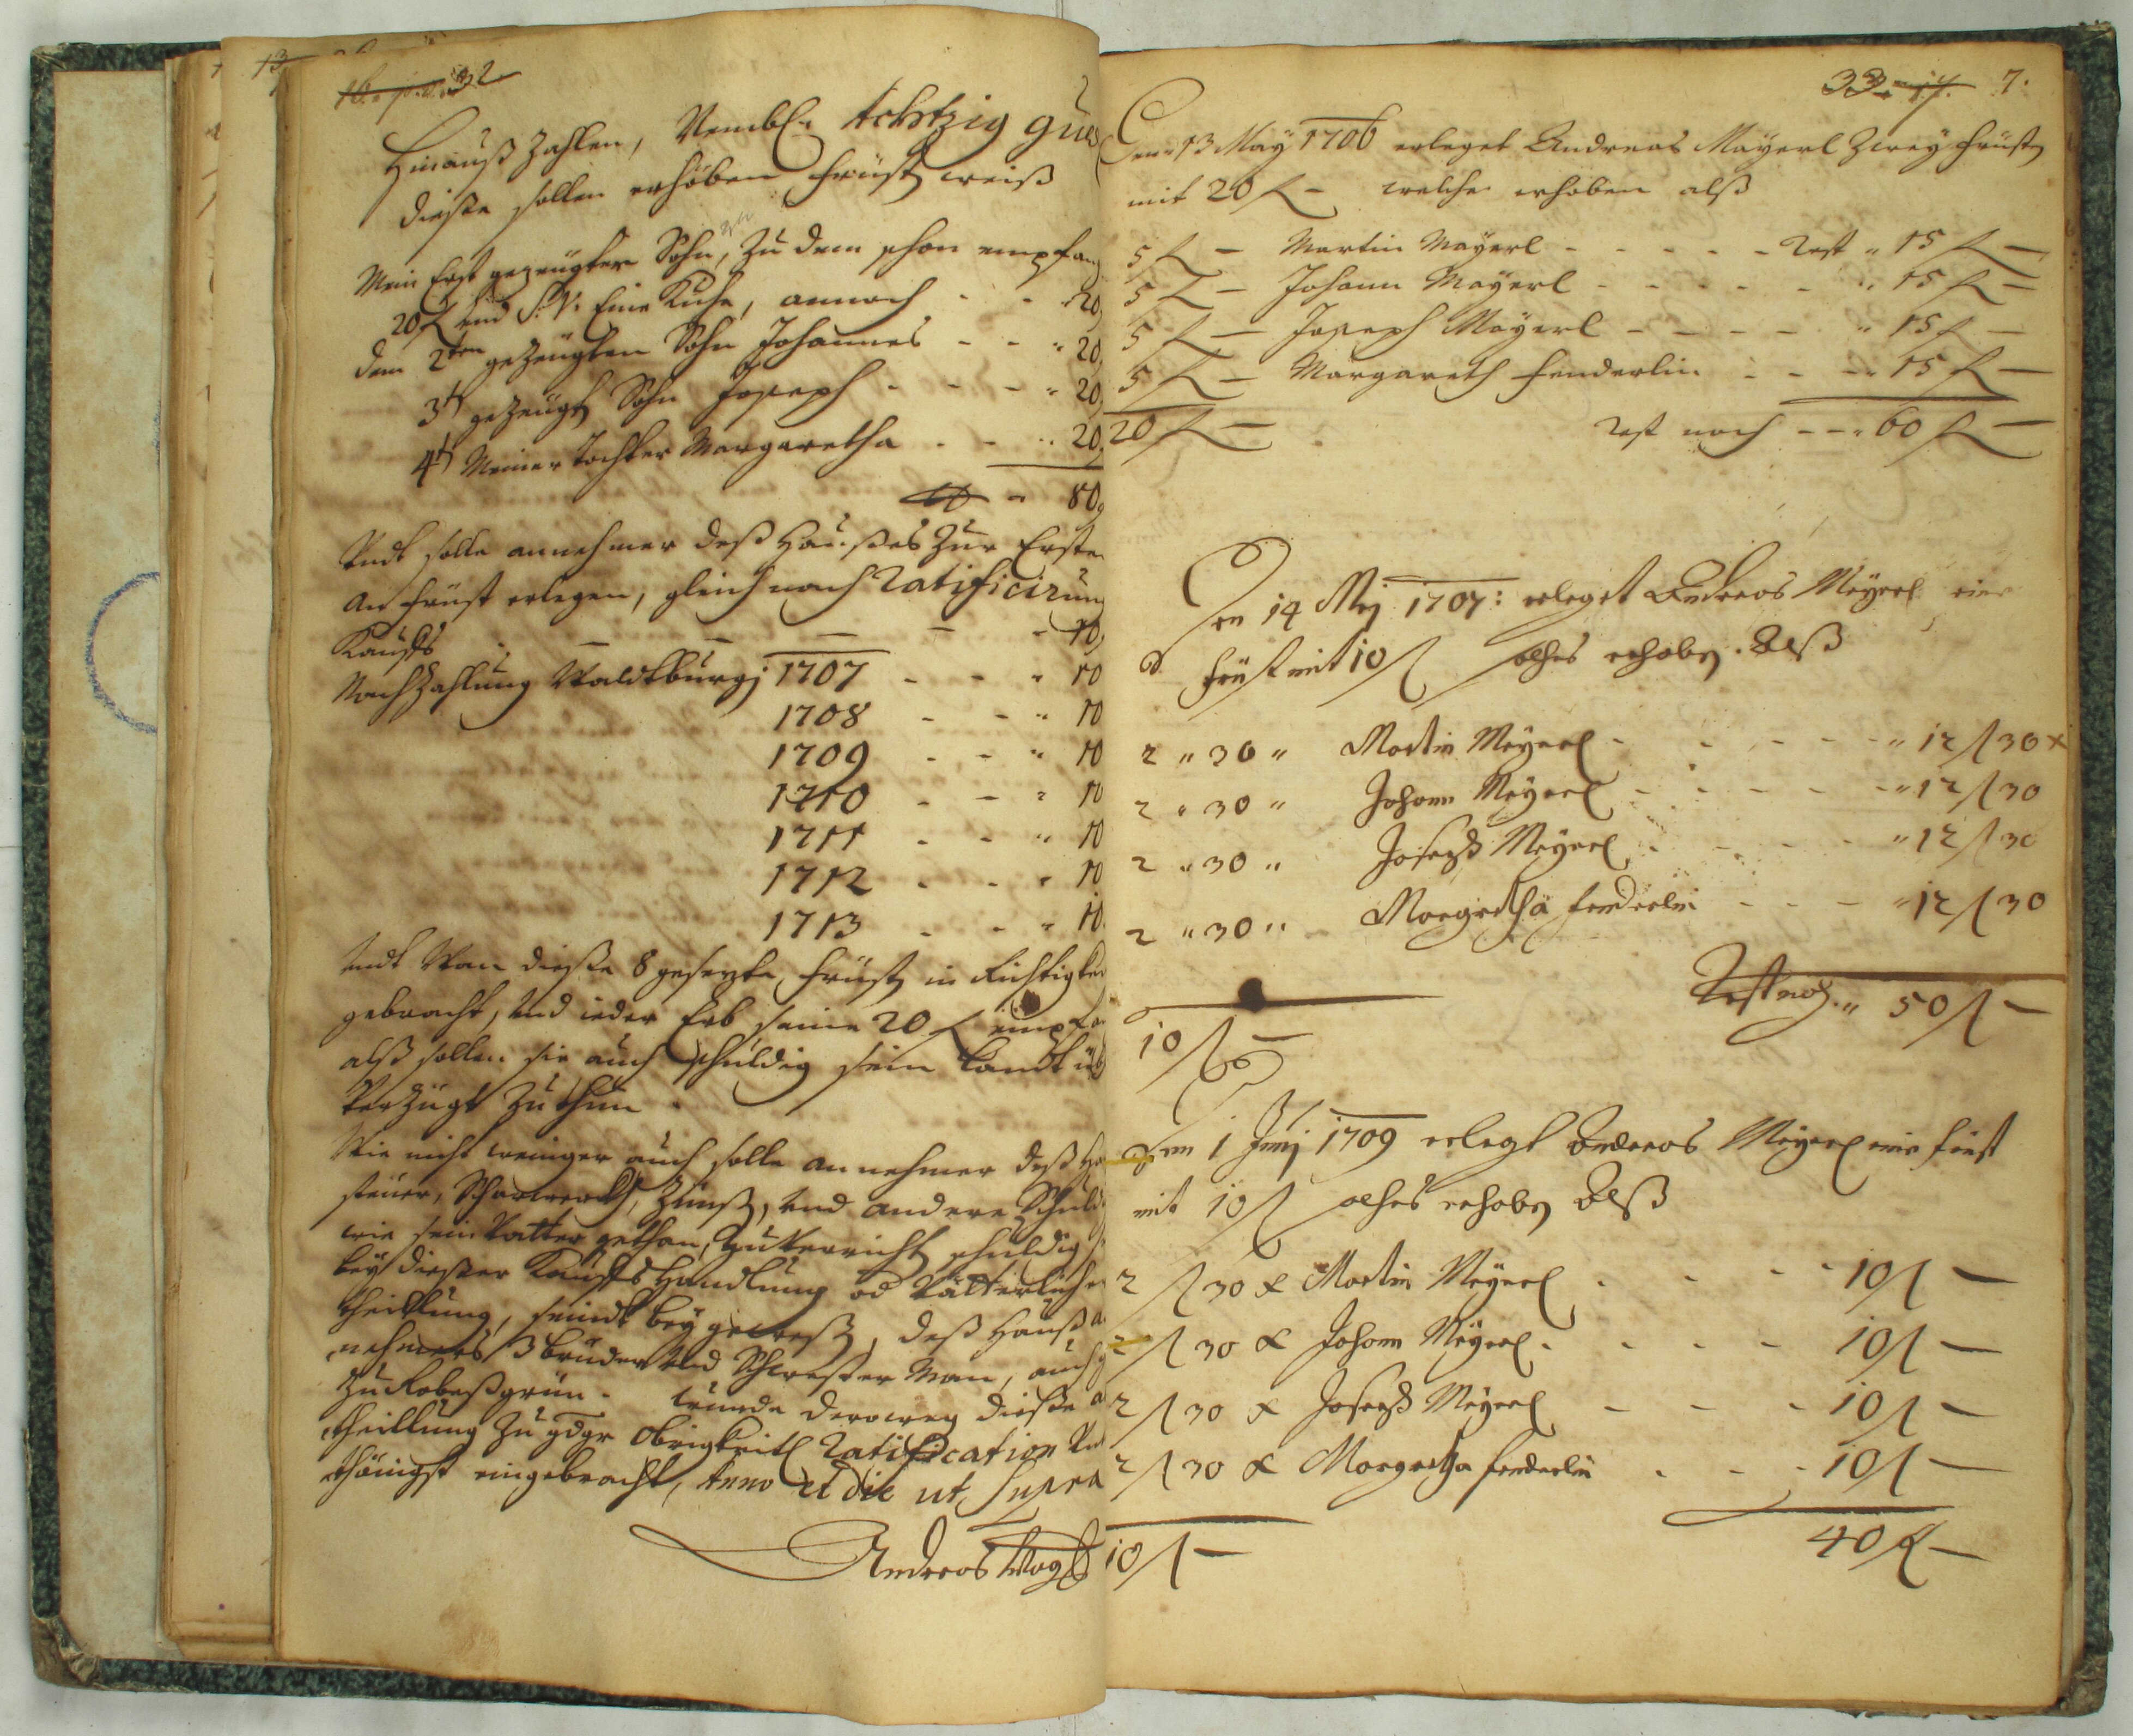 32
Hinauß Zahlen, Nembl: Achtzig gul
dieße sollen erhöben früst weiß
Mein Erst gezeugter Sohn, Zu dem schon empfang
20 f und S: V: Eine Kuhe, annoch - - 20
dem 2ten gezeugten Sohn Johannes - - " 20
3t gezeugt Sohn Joseph - - - " 20
4t Meiner Tochter Margaretha - - " 20
" 80
Undt solle annehmer deß Haußes Zur Ersten
An früst erlegen, gleich nach Ratificirung
Kauffs - - - - - 10
Nach Zahlung Waldtburgj 1707 - - " 10
1708 - - " 10
1709 - - " 10
1710 - - " 10
1711 - - " 10
1712 - - " 10
1713 - - " 10
Undt Wan dieße 8 gesezte früst in Richtigkei
gebracht, und ieder Erb seine 20 f empfa
alß sollen sie auch schuldig sein
Verzügt Zu thun.
Wie nicht weniger auch solle annehmer deß Ha
steuer, Scharwerckh, Zinß, und andere Schuld
wie sein Vatter gethan, Zu verricht schuldig
bey dießer Kauffs Handlung od Vätterlicher
theillung, seindt bey geweß, deß Hauß a
nehmers 3 brüder und Schwester Man, auch
Zu Robeßgrün. wurde derowey dieße a
theillung Zu gdgr Obrigkeitl Ratification Un
thänigst eingebracht, Anno et die ut Supra
Andreas
33 17. 7.
Den 13 May 1706 erleget Andreas Mayerl Zwey früst
mit 20 f - welche erhoben alß
5 f - Martin Mayerl - - - - - Rest " 15 f -
5 f - Johann Mayerl - - - - - " 15 f -
5 f - Joseph Mayerl - - - - " 15 f -
5 f - Margareth Fenderlin - - - " 15 f -
20 f - Rest noch - - " 60 f -
Den 14 Mej 1707: erleget Andreas Meyerl eine
früst mit 10 f solches erhoben. Alß
2 " 30 " Martin Meyerl - - - - " 12 f 30 x
2 " 30 " Johann Meyerl - - - - " 12 f 30
2 " 30 " Joseph Meyerl - - - - " 12 f 30
2 " 30 " Margretha Fenderlin - - - " 12 f 30
Rest noch " 50 f -
10 f -
Den 1 Junj 1709 erlegt Andreas Meyerl ein früst
mit 10 f solches erhoben Alß
2 f 30 x Martin Meyerl - - - - 10 f -
2 f 30 x Johann Meyerl - - - - 10 f -
2 f 30 x Joseph Meyerl - - - 10 f -
2 f 30 x Margretha Fenderlin - - - 10 f -
10 f - 40 f -